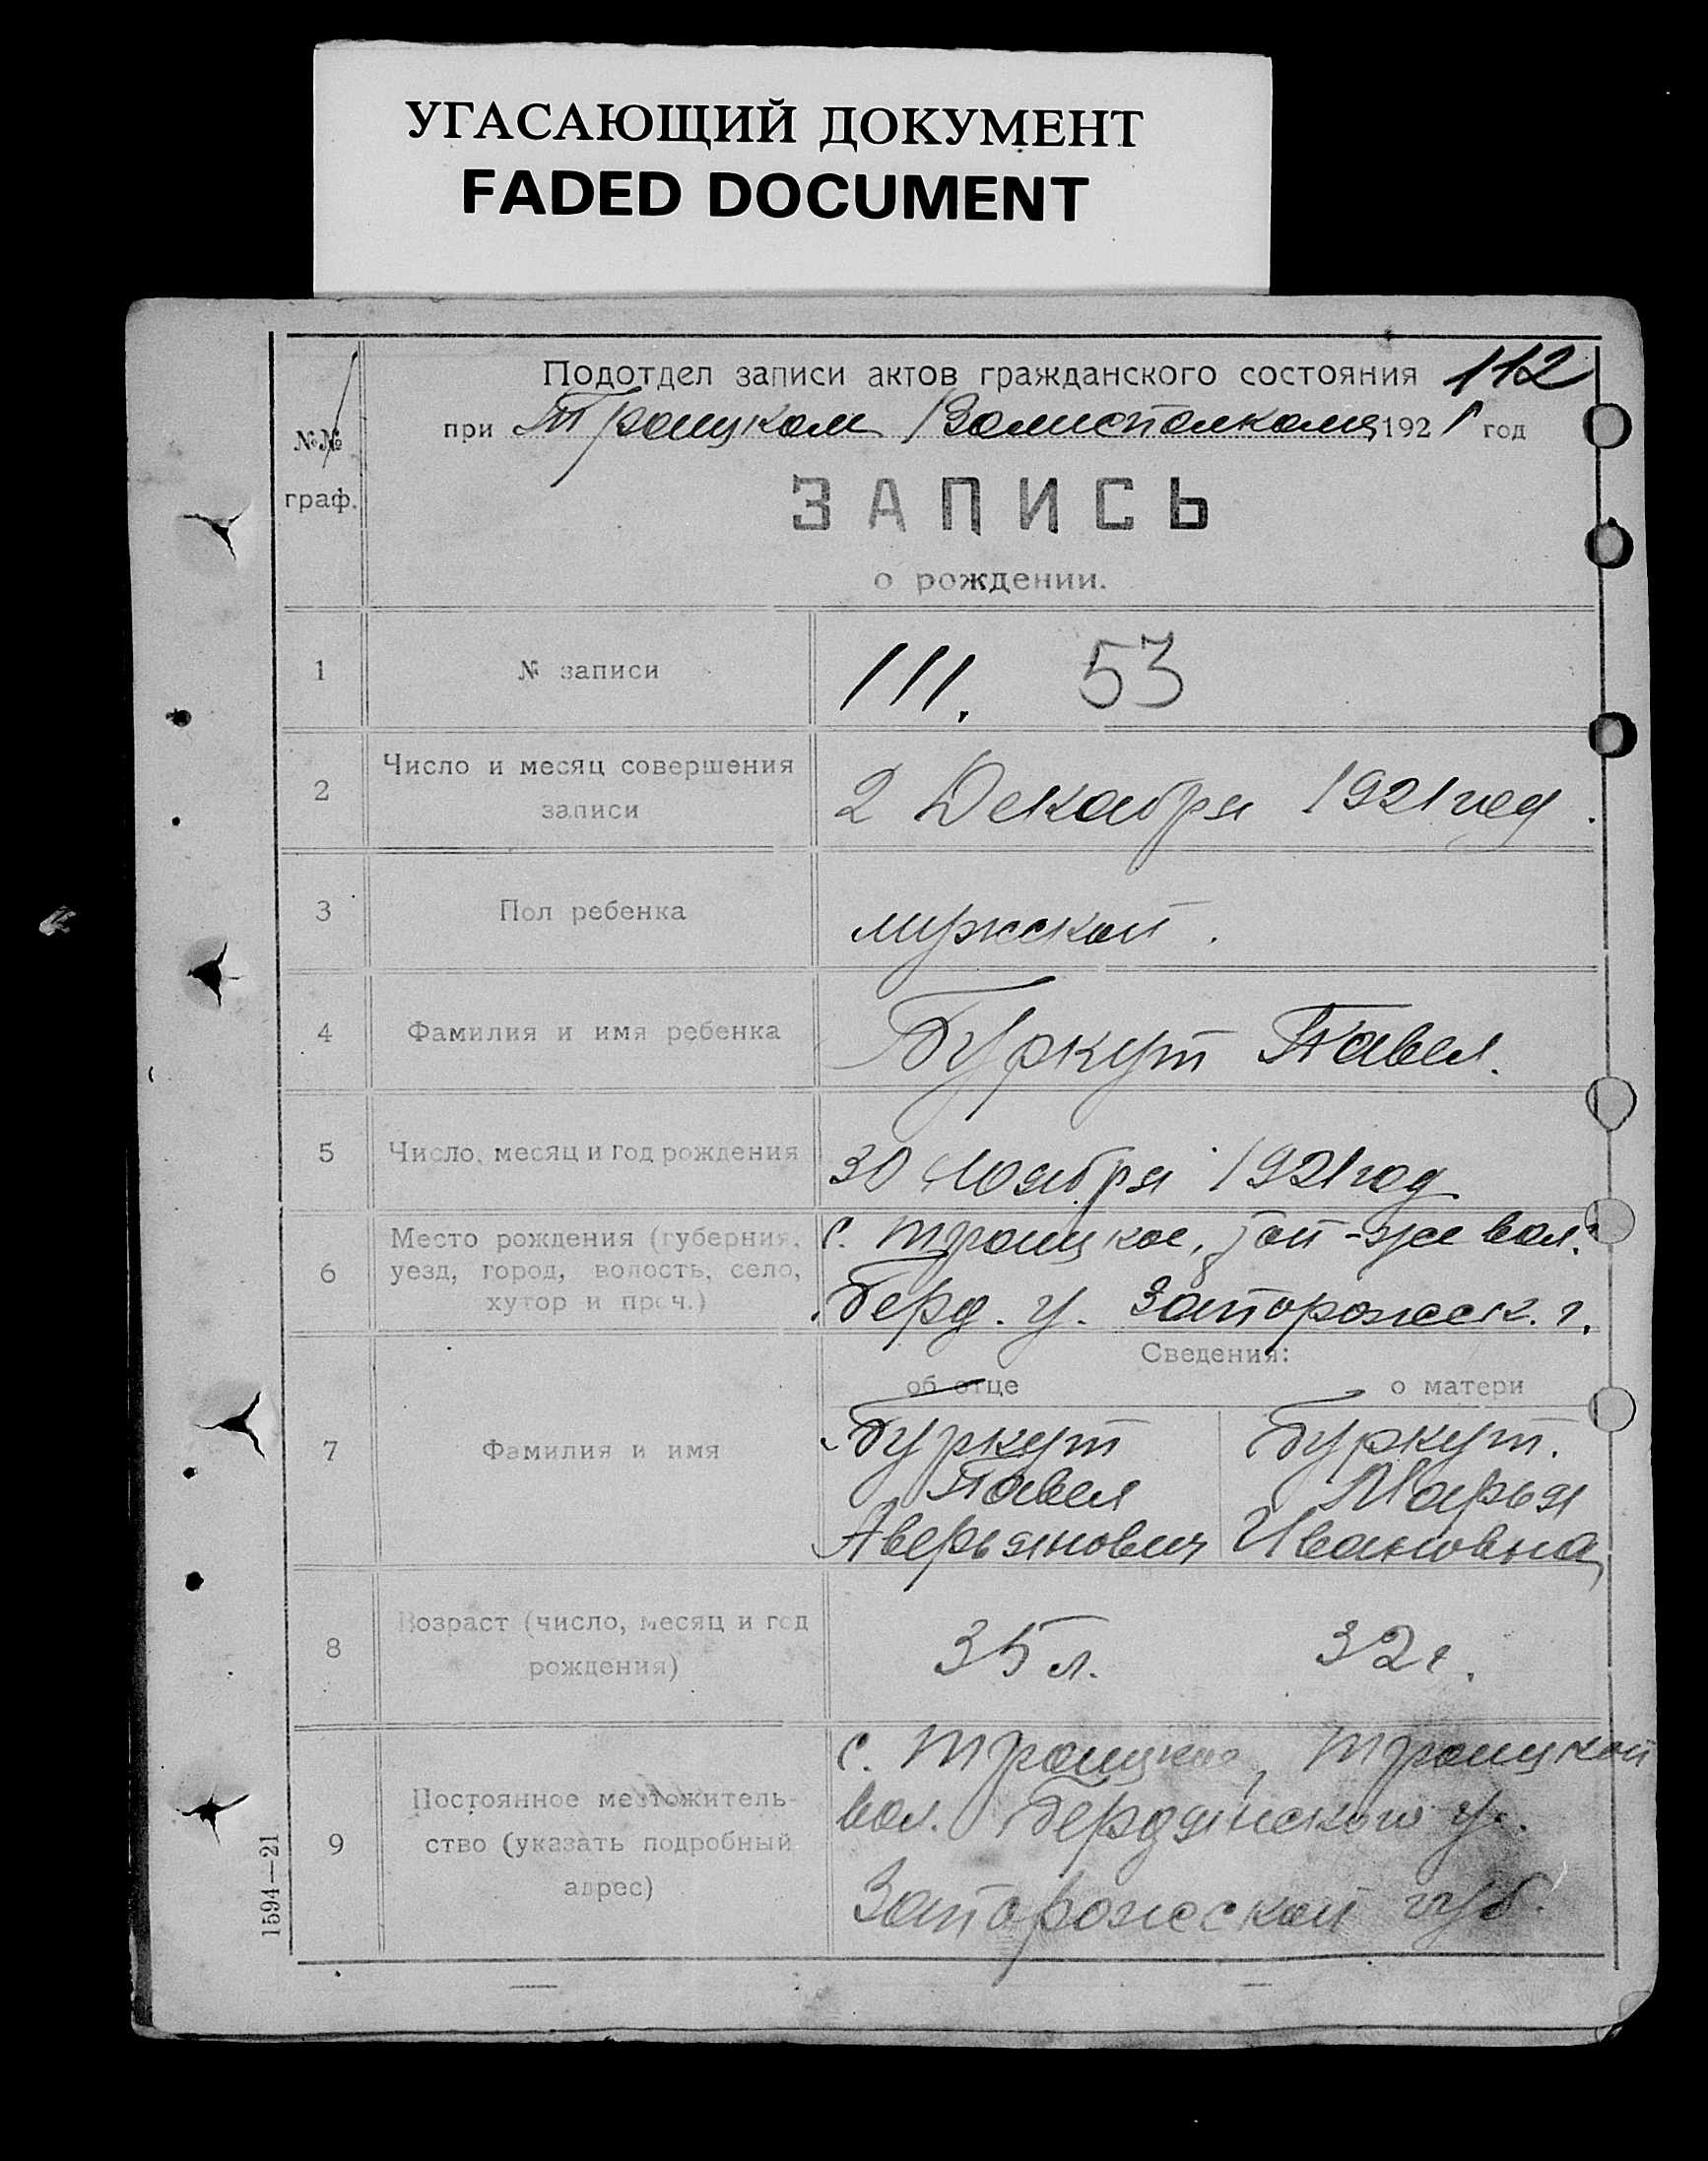 УГАСАЮЩИЙ ДОКУМЕНТ
FADED DOCUMENT
Подотдел записи актов гражданского состояния 112
при Троицком Волисполкоме 1921 год
№№
граф.
ЗАПИСЬ
о рождении.
1 № записи 111. 53
2 Число и месяц совершения
записи
2 Декабря 1921 год.
3 Пол ребенка мужской.
4 Фамилия и имя ребенка Буркут Павел.
5 Число, месяц и год рождения 30 Ноября 1921 год
6 Место рождения (губерния,
уезд, город, волость, село,
хутор и проч.)
с. Троицкое, той-же вол.
Берд. у. Запорожск. г.
Сведения:
об отце о матери
7 Фамилия и имя
Буркут
Павел
Аверьянович
Буркут.
Марья
Ивановна
8 Возраст (число, месяц и год
рождения)
35 л. 32 г.
9 Постоянное местожитель-
ство (указать подробный
адрес)
с. Троицкое, Троицкой
вол. Бердянского у.
Запорожской губ.
1594—21